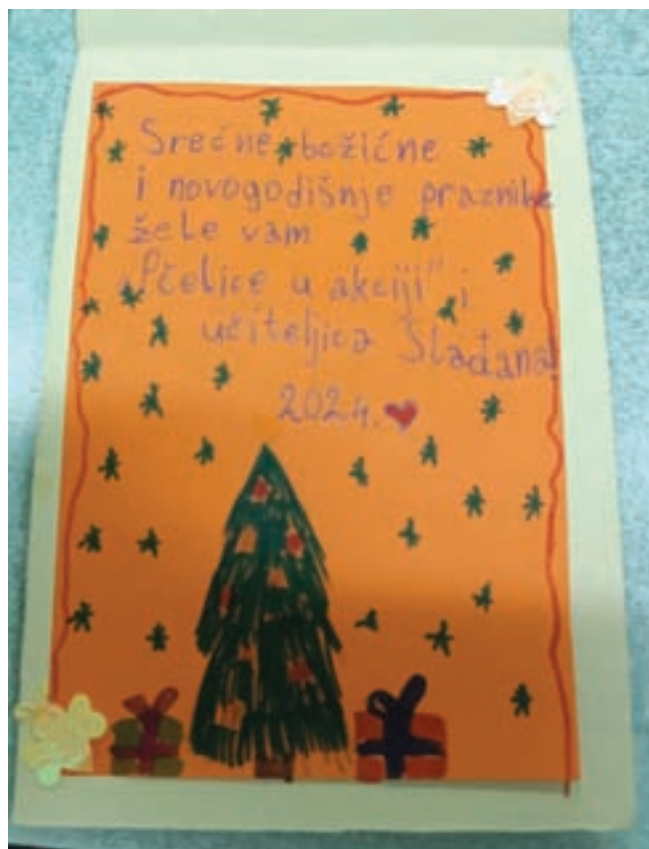 Srećne božićne
i novogodišnje praznike
žele vam
„Pčelice u akciji" i
učiteljica Slađana!
2024.